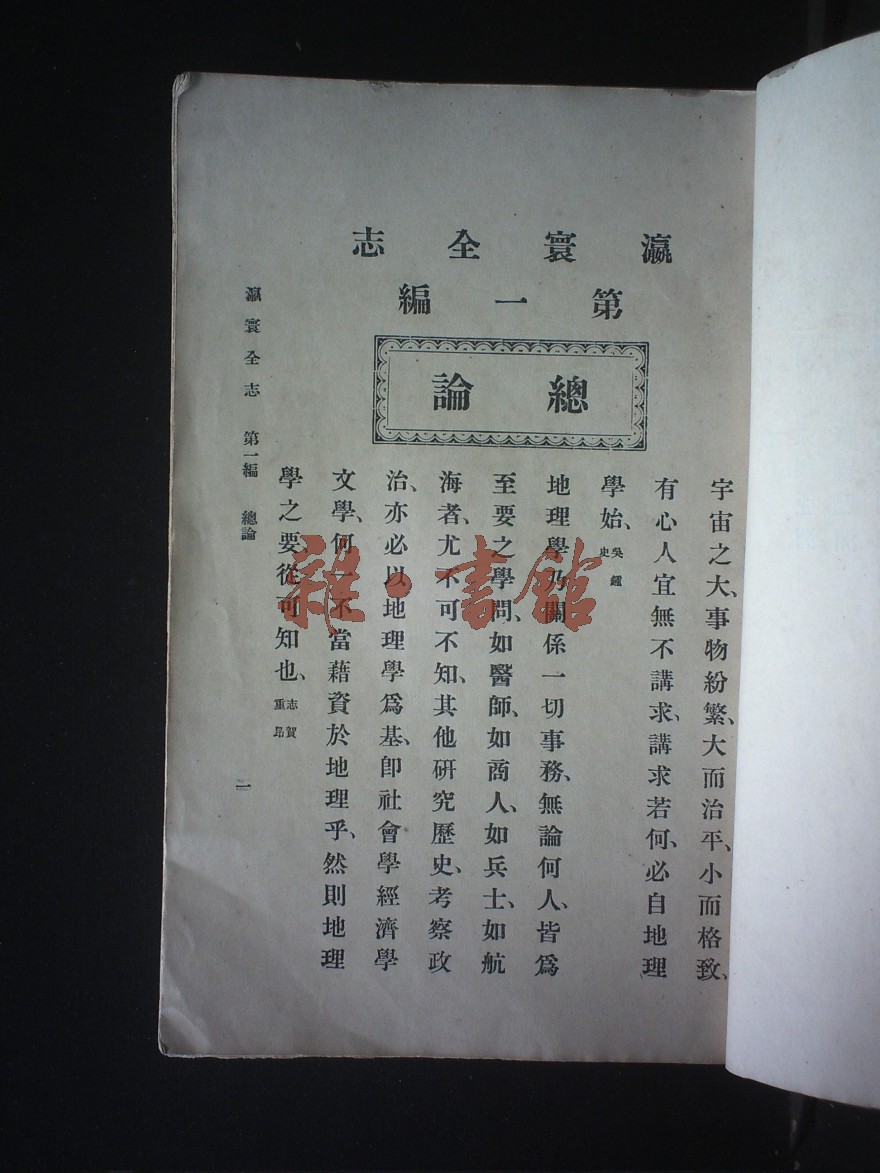 瀛寰全志
第一編
總論
宇宙之大、事物紛繁、大而治平、小而格致、
有心人宜無不講求、講求若何、必自地理
學始、吳鑑史
地理學乃關係一切事務、無論何人、皆爲
至要之學問、如醫師、如商人、如兵士、如航
海者、尤不可不知、其他研究歷史、考察政
治、亦必以地理學爲基、卽社會學經濟學
文學、何一不當藉資於地理乎、然則地理
學之要、從可知也、志賀重昂
瀛寰全志 第一編 總論
一
雜·書館